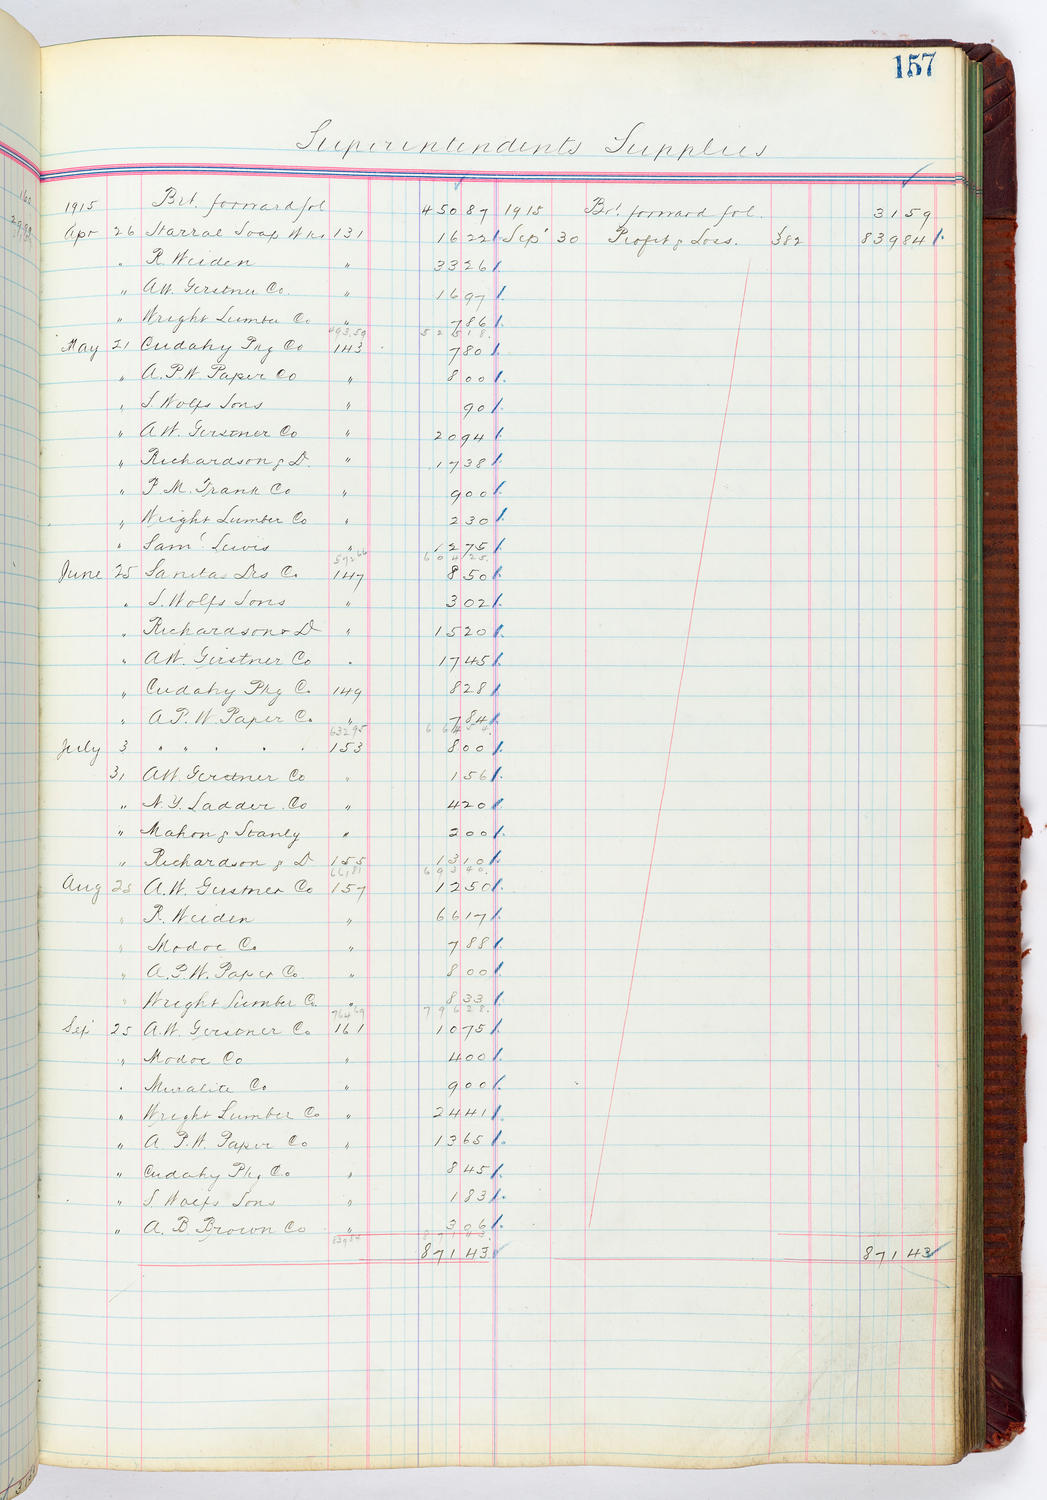 157
Superintendents Supplies
1915 Brt. forward fol 450 87 1915 Brt. forward fol. 31 59
Apr 26 Soap Wks 131 16 22 Sep 30 Profit & Loss. 382 839 84
" R. Weiden " 33 26
" A.W. Gerstner Co. " 16 97
" Wright Lumber Co " 7 86
493.59 525 18
May 21 Cudahy Pkg Co 143 7 80
" A.P.W. Paper Co " 8 00
" S. Wolfs Sons " 90
" A.W. Gerstner Co " 20 94
" Richardson & D. " 17 38
" P. M. Frank Co " 9 00
" Wright Lumber Co " 2 30
" Saml. Lewis " 12 75
572 66 604 25
June 25 Sanitas Co. 147 8 50
" S. Wolfs Sons " 3 02
" Richardson & D " 15 20
" A.W. Gerstner Co " 17 45
" Cudahy Pkg C. 149 8 28
" A.P.W. Paper C. " 7 84
632 95 664 54
July 3 " " " " " 153 8 00
31 A.W. Gerstner Co " 1 56
" N.Y. Ladder Co " 4 20
" Mahon & Stanly " 2 00
" Richardson & D 155 13 10
661 81 693 40
Aug 25 A.W. Gerstner Co 157 12 50
" R. Weiden " 66 17
" Modoc Co. " 7 88
" A.P.W. Paper Co " 8 00
" Wright Lumber C. " 8 33
764 69 796 28
Sep 25 A.W. Gerstner Co. 161 10 75
" Modoc Co " 4 00
" Muralite Co. " 9 00
" Wright Lumber Co " 24 41
" A.P.W. Paper Co " 13 65
" Cudahy Pkg Co. " 8 45
" S. Wolfs Sons " 1 83
" A. B. Brown Co " 3 06
839 84 871 43
871 43 871 43